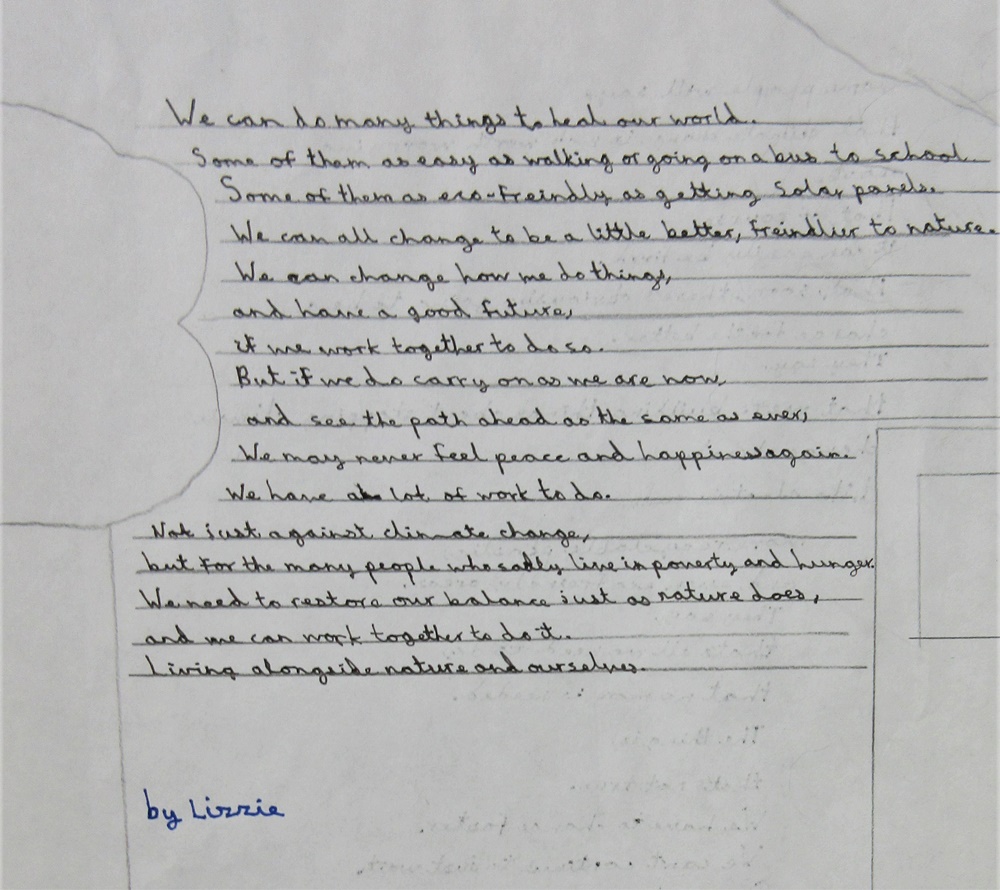 We can do many things to heal our world.
Some of them as easy as walking or going on a bus to school.
Some of them as eco-freindly as getting Solar panels.
We can all change to be a little better, freindlier to nature.
We can change how we do things,
and have a good future,
if we work together to do so.
But if we do carry on as we are now,
and see the path ahead as the same as ever,
We may never feel peace and happiness again.
We have a lot of work to do.
Not just against climate change,
but for the many people who sadly live in poverty and hunger.
We need to restore our balance just as nature does,
and we can work together to do it.
Living alongside nature and ourselves.
by Lizzie